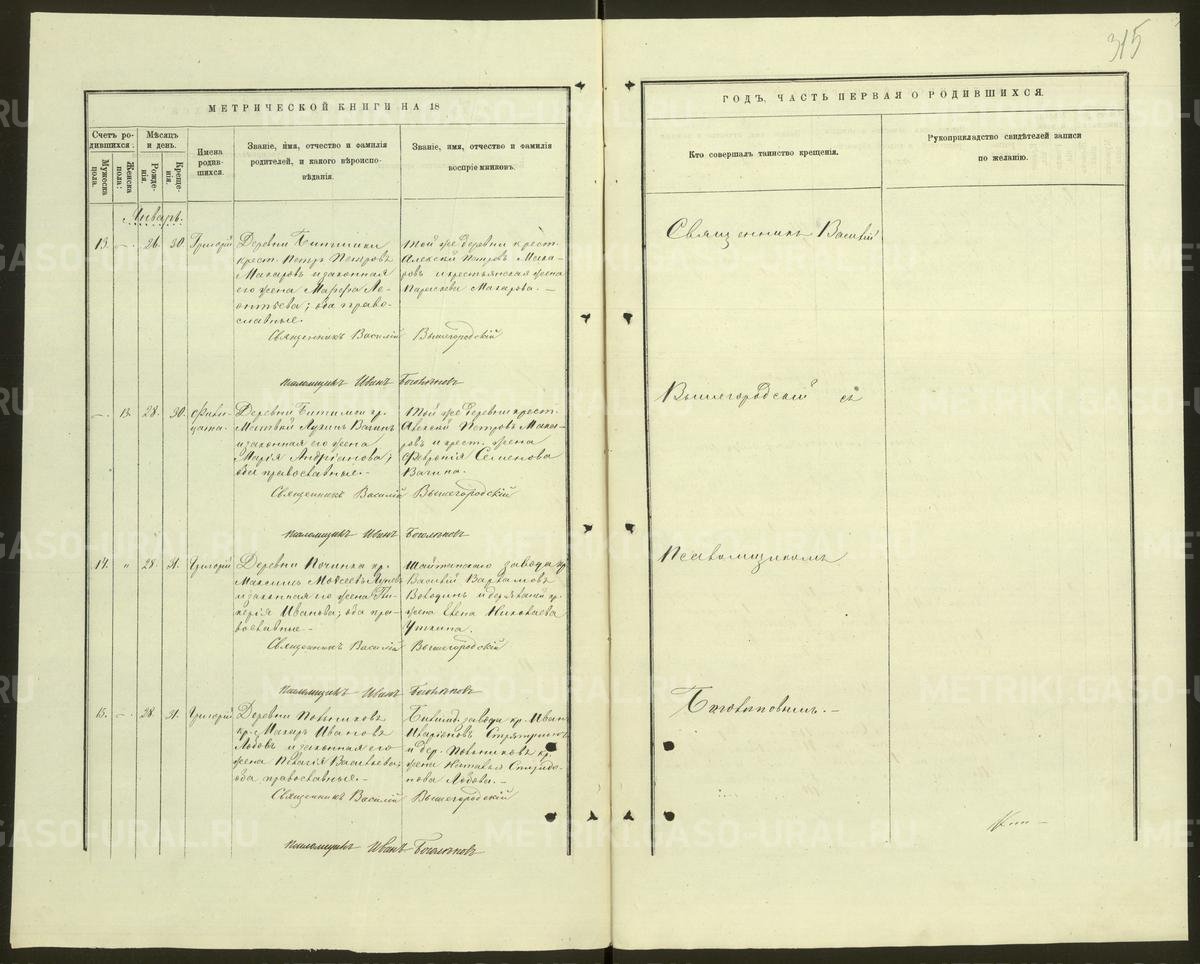 315
МЕТРИЧЕСКОЙ КНИГИ НА 18
Счетъ ро-
дившихся:
Мужеска
пола.
Женска
пола:
Мѣсяцъ
и день.
Рожде-
нія.
Креще-
нія.
Имена
родив-
шихся.
Званіе, имя, отчество и фамилія
родителей, и какого вѣроиспо-
вѣданія.
Званіе, имя, отчество и фамилія
воспріемниковъ.
Январь.
13. — 26. 30. Григорій
Деревни
крест. Петръ Петровъ
Макаровъ и законная
его жена Марфа Ле-
онтьева; оба право-
славные.
Той же деревни крест.
Алексѣй Петровъ Мака-
ровъ и крестьянская жена
Параскева Макарова. —
Священникъ Василій Вышегородскій
Псаломщикъ Иванъ Боголѣповъ
— 13. 28. 30.
Деревни Битимки кр.
Матвѣй Лукинъ Вагинъ
и законная его жена
Марія Андріанова;
оба православные. —
Той же деревни крест.
Алексѣй Петровъ Мака-
ровъ и крест. жена
Февронія Семенова
Вагина.
Священникъ Василій Вышегородскій
Псаломщикъ Иванъ Боголѣповъ
14. " 28. 31. Григорій
Деревни Починка кр.
Максимъ Моѵсеевъ
и законная его жена Гли-
керія Иванова; оба пра-
вославные —
Шайтанскаго завода кр.
Василій Варламовъ
Володинъ и кр.
жена Елена Николаева
Уткина.
Священникъ Василій Вышегородскій
Псаломщикъ Иванъ Боголѣповъ
15. — 28. 31. Григорій
Деревни
кр. Макаръ Ивановъ
Лобовъ и законная его
жена Пелагія Васильева;
оба православные. —
завода кр. Иванъ
Иларіоновъ
и дер. кр.
жена Наталья Спиридо-
нова Лобова. —
Священникъ Василій Вышегородскій
Псаломщикъ Иванъ Боголѣповъ
ГОДЪ, ЧАСТЬ ПЕРВАЯ О РОДИВШИХСЯ.
Кто совершалъ таинство крещенія.
Рукоприкладство свидѣтелей записи
по желанію.
Священникъ Василій
Вышегородскій съ
Псаломщикомъ
Боголѣповымъ. —
METRIKI.GASO-URAL.RU